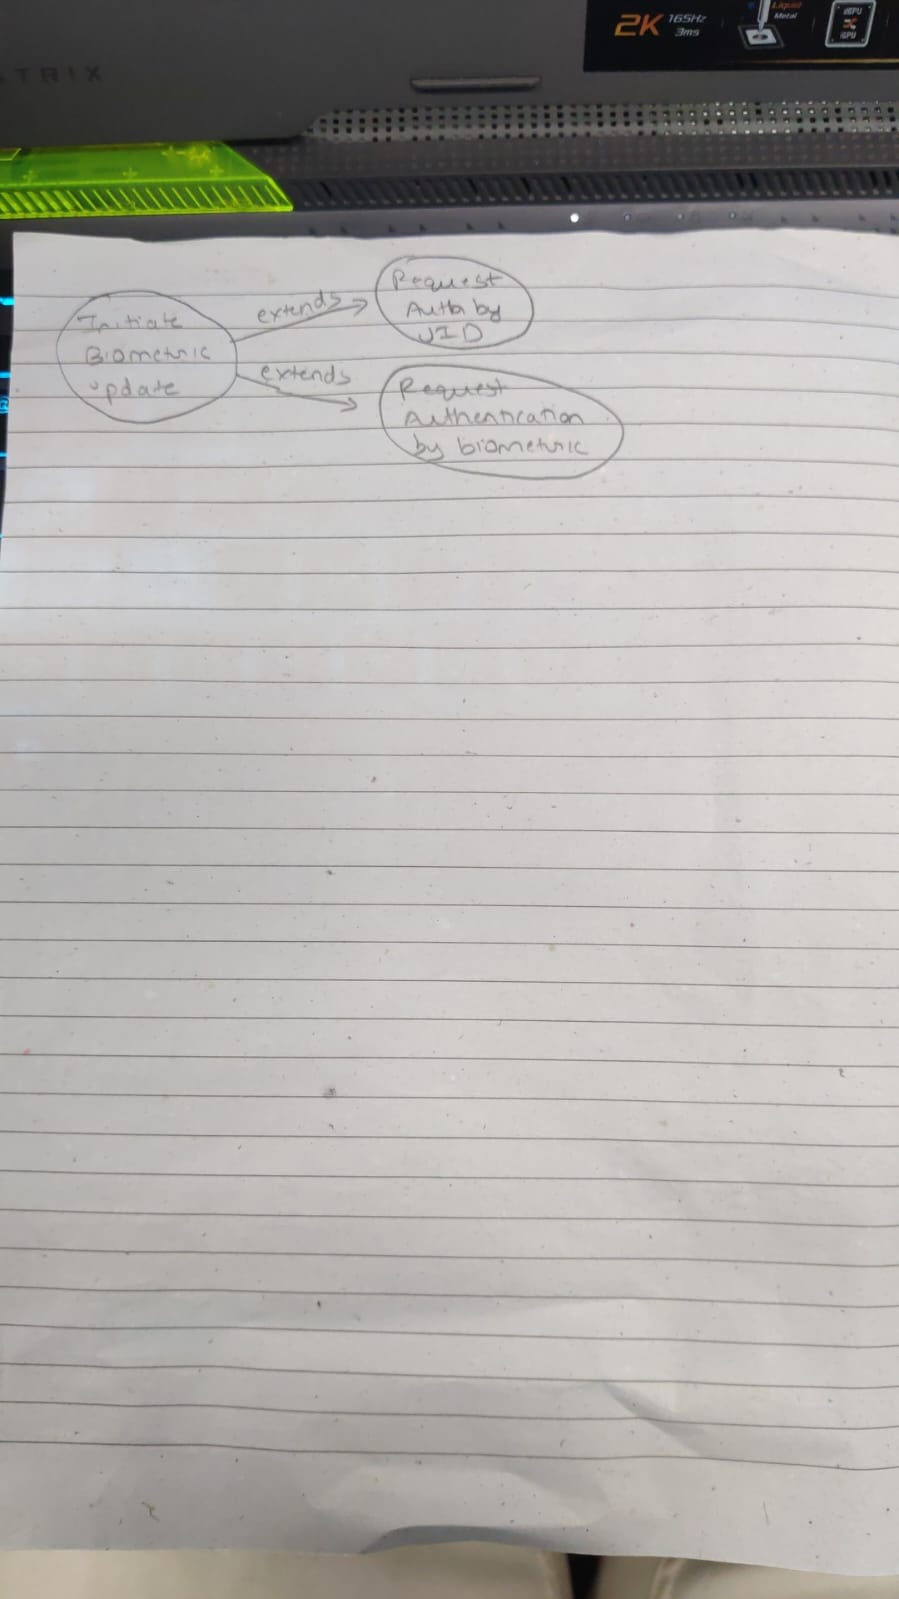 TRIX
2K 165Hz
3ms
Liquid
Metal
dGPU
iGPU
Initiate
Biometric
update
extends
Request
Auth by
UID
extends
Request
Authentication
by biometric